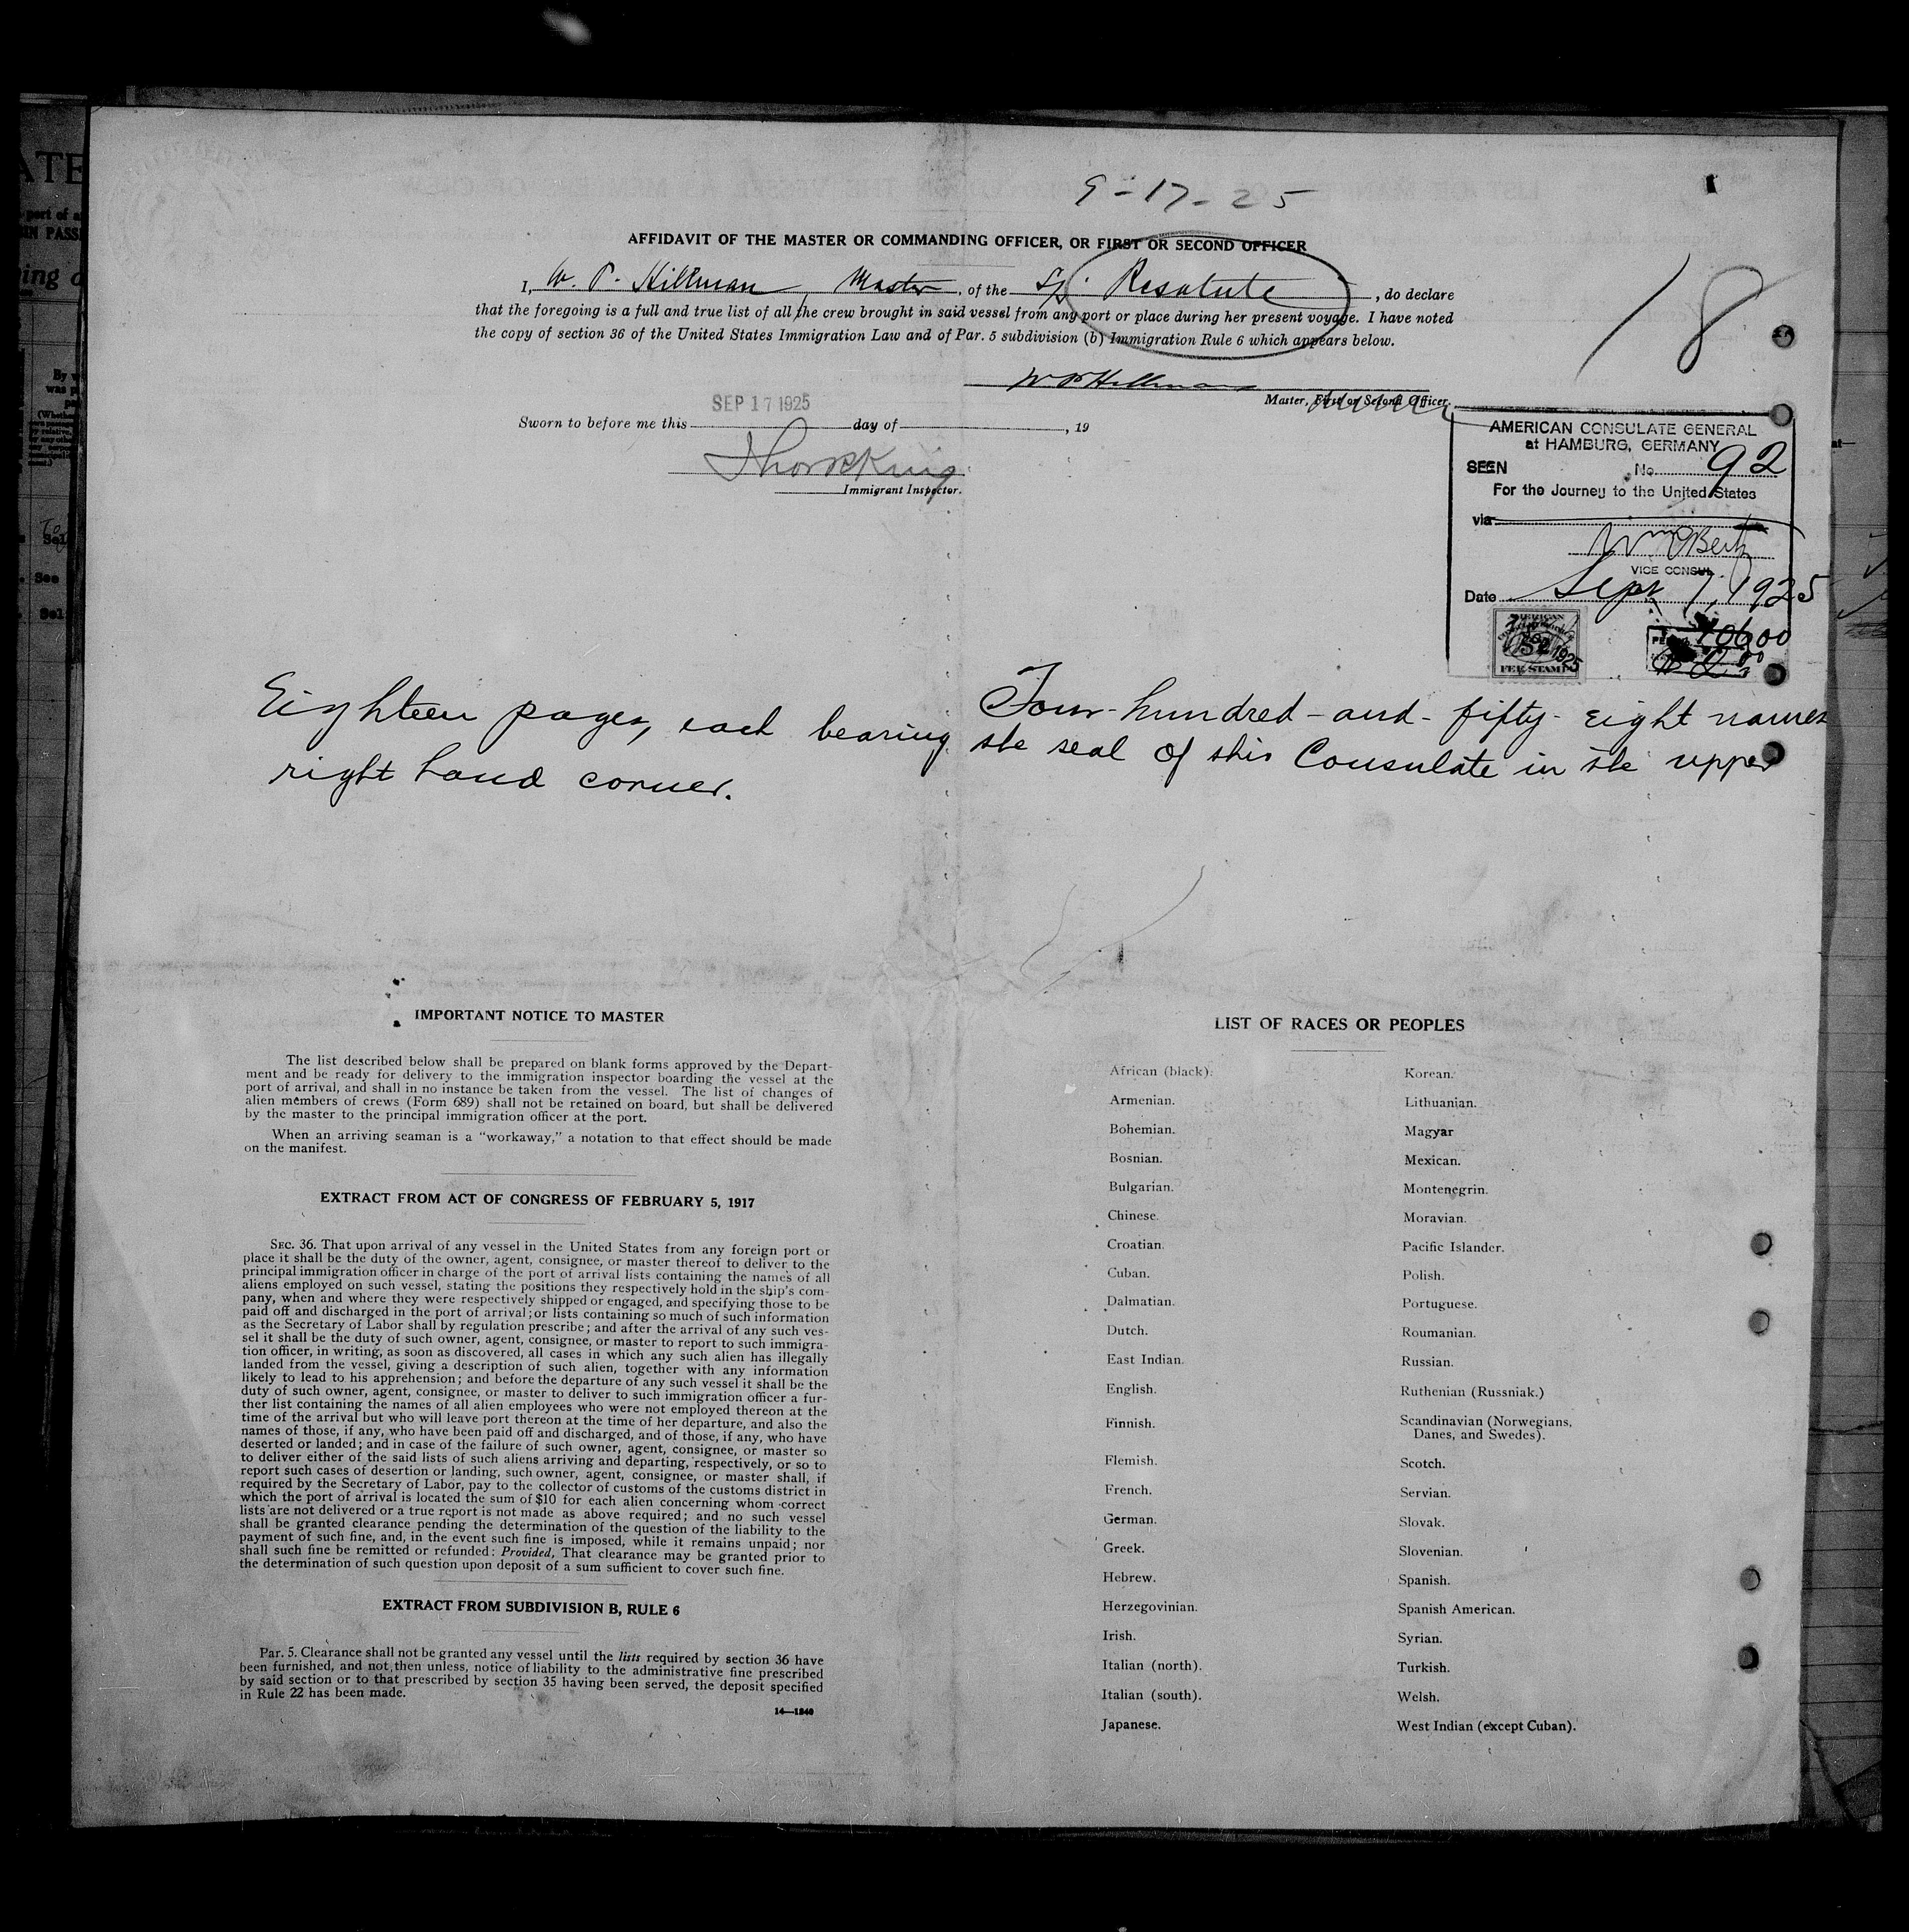 9-17-25
AFFIDAVIT OF THE MASTER OR COMMANDING OFFICER, OR FIRST OR SECOND OFFICER
I, W. P. Hillman, Master, of the Resolute, do declare
that the foregoing is a full and true list of all the crew brought in said vessel from any port or place during her present voyage. I have noted
the copy of section 36 of the United States Immigration Law and of Par. 5 subdivision (b) Immigration Rule 6 which appears below.
18
Master, First or Second Officer.
SEP 17 1925
Sworn to before me this day of , 19
Immigrant Inspector.
AMERICAN CONSULATE GENERAL
at HAMBURG, GERMANY
SEEN No. 92
For the Journey to the United States
via
VICE CONSUL
Date Sept 7, 1925
FEE STAMP
Four-hundred-and-fifty-eight names
Eighteen pages, each bearing the seal of this Consulate in the upper
right hand corner.
IMPORTANT NOTICE TO MASTER
The list described below shall be prepared on blank forms approved by the Depart-
ment and be ready for delivery to the immigration inspector boarding the vessel at the
port of arrival, and shall in no instance be taken from the vessel. The list of changes of
alien members of crews (Form 689) shall not be retained on board, but shall be delivered
by the master to the principal immigration officer at the port.
When an arriving seaman is a "workaway," a notation to that effect should be made
on the manifest.
EXTRACT FROM ACT OF CONGRESS OF FEBRUARY 5, 1917
SEC. 36. That upon arrival of any vessel in the United States from any foreign port or
place it shall be the duty of the owner, agent, consignee, or master thereof to deliver to the
principal immigration officer in charge of the port of arrival lists containing the names of all
aliens employed on such vessel, stating the positions they respectively hold in the ship's com-
pany, when and where they were respectively shipped or engaged, and specifying those to be
paid off and discharged in the port of arrival; or lists containing so much of such information
as the Secretary of Labor shall by regulation prescribe; and after the arrival of any such ves-
sel it shall be the duty of such owner, agent, consignee, or master to report to such immigra-
tion officer, in writing, as soon as discovered, all cases in which any such alien has illegally
landed from the vessel, giving a description of such alien, together with any information
likely to lead to his apprehension; and before the departure of any such vessel it shall be the
duty of such owner, agent, consignee, or master to deliver to such immigration officer a fur-
ther list containing the names of all alien employees who were not employed thereon at the
time of the arrival but who will leave port thereon at the time of her departure, and also the
names of those, if any, who have been paid off and discharged, and of those, if any, who have
deserted or landed; and in case of the failure of such owner, agent, consignee, or master so
to deliver either of the said lists of such aliens arriving and departing, respectively, or so to
report such cases of desertion or landing, such owner, agent, consignee, or master shall, if
required by the Secretary of Labor, pay to the collector of customs of the customs district in
which the port of arrival is located the sum of $10 for each alien concerning whom correct
lists are not delivered or a true report is not made as above required; and no such vessel
shall be granted clearance pending the determination of the question of the liability to the
payment of such fine, and, in the event such fine is imposed, while it remains unpaid; nor
shall such fine be remitted or refunded: Provided, That clearance may be granted prior to
the determination of such question upon deposit of a sum sufficient to cover such fine.
EXTRACT FROM SUBDIVISION B, RULE 6
Par. 5. Clearance shall not be granted any vessel until the lists required by section 36 have
been furnished, and not then unless, notice of liability to the administrative fine prescribed
by said section or to that prescribed by section 35 having been served, the deposit specified
in Rule 22 has been made.
14—1240
LIST OF RACES OR PEOPLES
African (black).
Armenian.
Bohemian.
Bosnian.
Bulgarian.
Chinese.
Croatian.
Cuban.
Dalmatian.
Dutch.
East Indian.
English.
Finnish.
Flemish.
French.
German.
Greek.
Hebrew.
Herzegovinian.
Irish.
Italian (north).
Italian (south).
Japanese.
Korean.
Lithuanian.
Magyar
Mexican.
Montenegrin.
Moravian.
Pacific Islander.
Polish.
Portuguese.
Roumanian.
Russian.
Ruthenian (Russniak.)
Scandinavian (Norwegians,
Danes, and Swedes).
Scotch.
Servian.
Slovak.
Slovenian.
Spanish.
Spanish American.
Syrian.
Turkish.
Welsh.
West Indian (except Cuban).